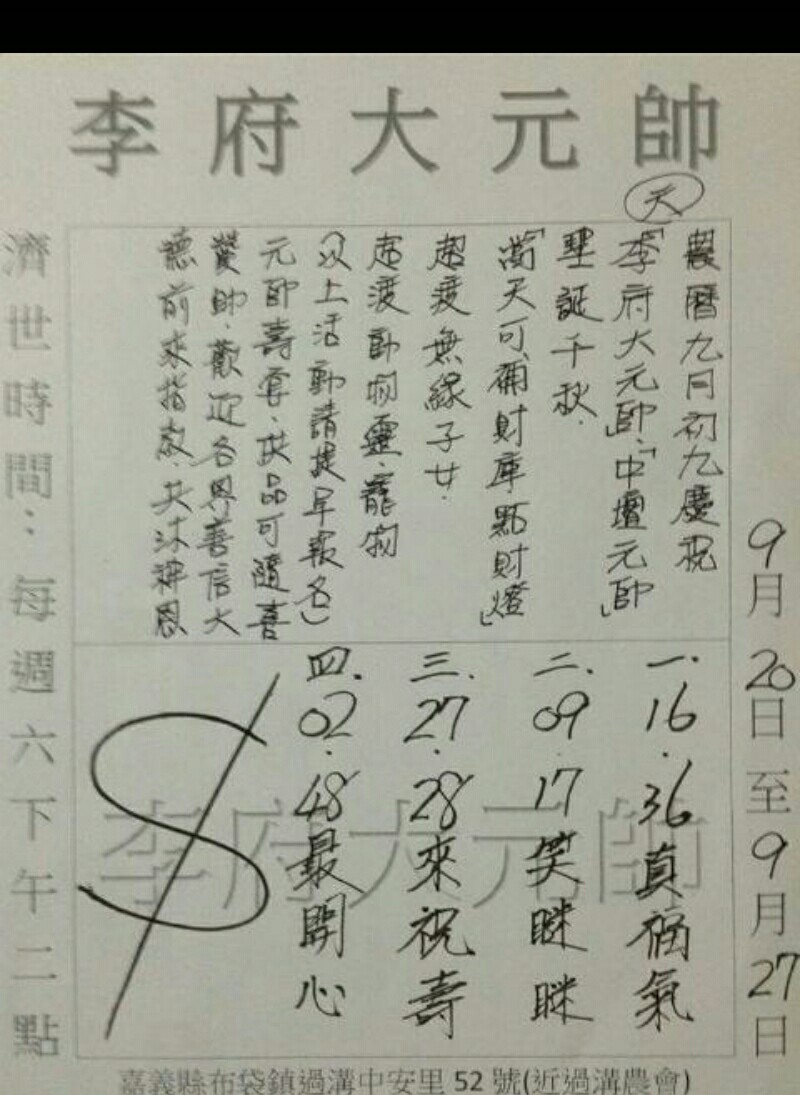 李府大元帥
天
農曆九月初九慶祝
「李府大元帥」「中壇元帥」
聖誕千秋.
「萬天可補財庫點財燈」
超渡無緣子女.
超渡動物靈.寵物
(以上活動請提早報名)
元帥壽宴.供品可隨喜
贊助.歡迎各界善信大
德前來指教.共沐神恩
一.16.36真福氣
二.09.17笑瞇瞇
三.27.28來祝壽
四.02.48最開心
李府大元帥
9月20日至9月27日
濟世時間：每週六下午二點
嘉義縣布袋鎮過溝中安里52號(近過溝農會)